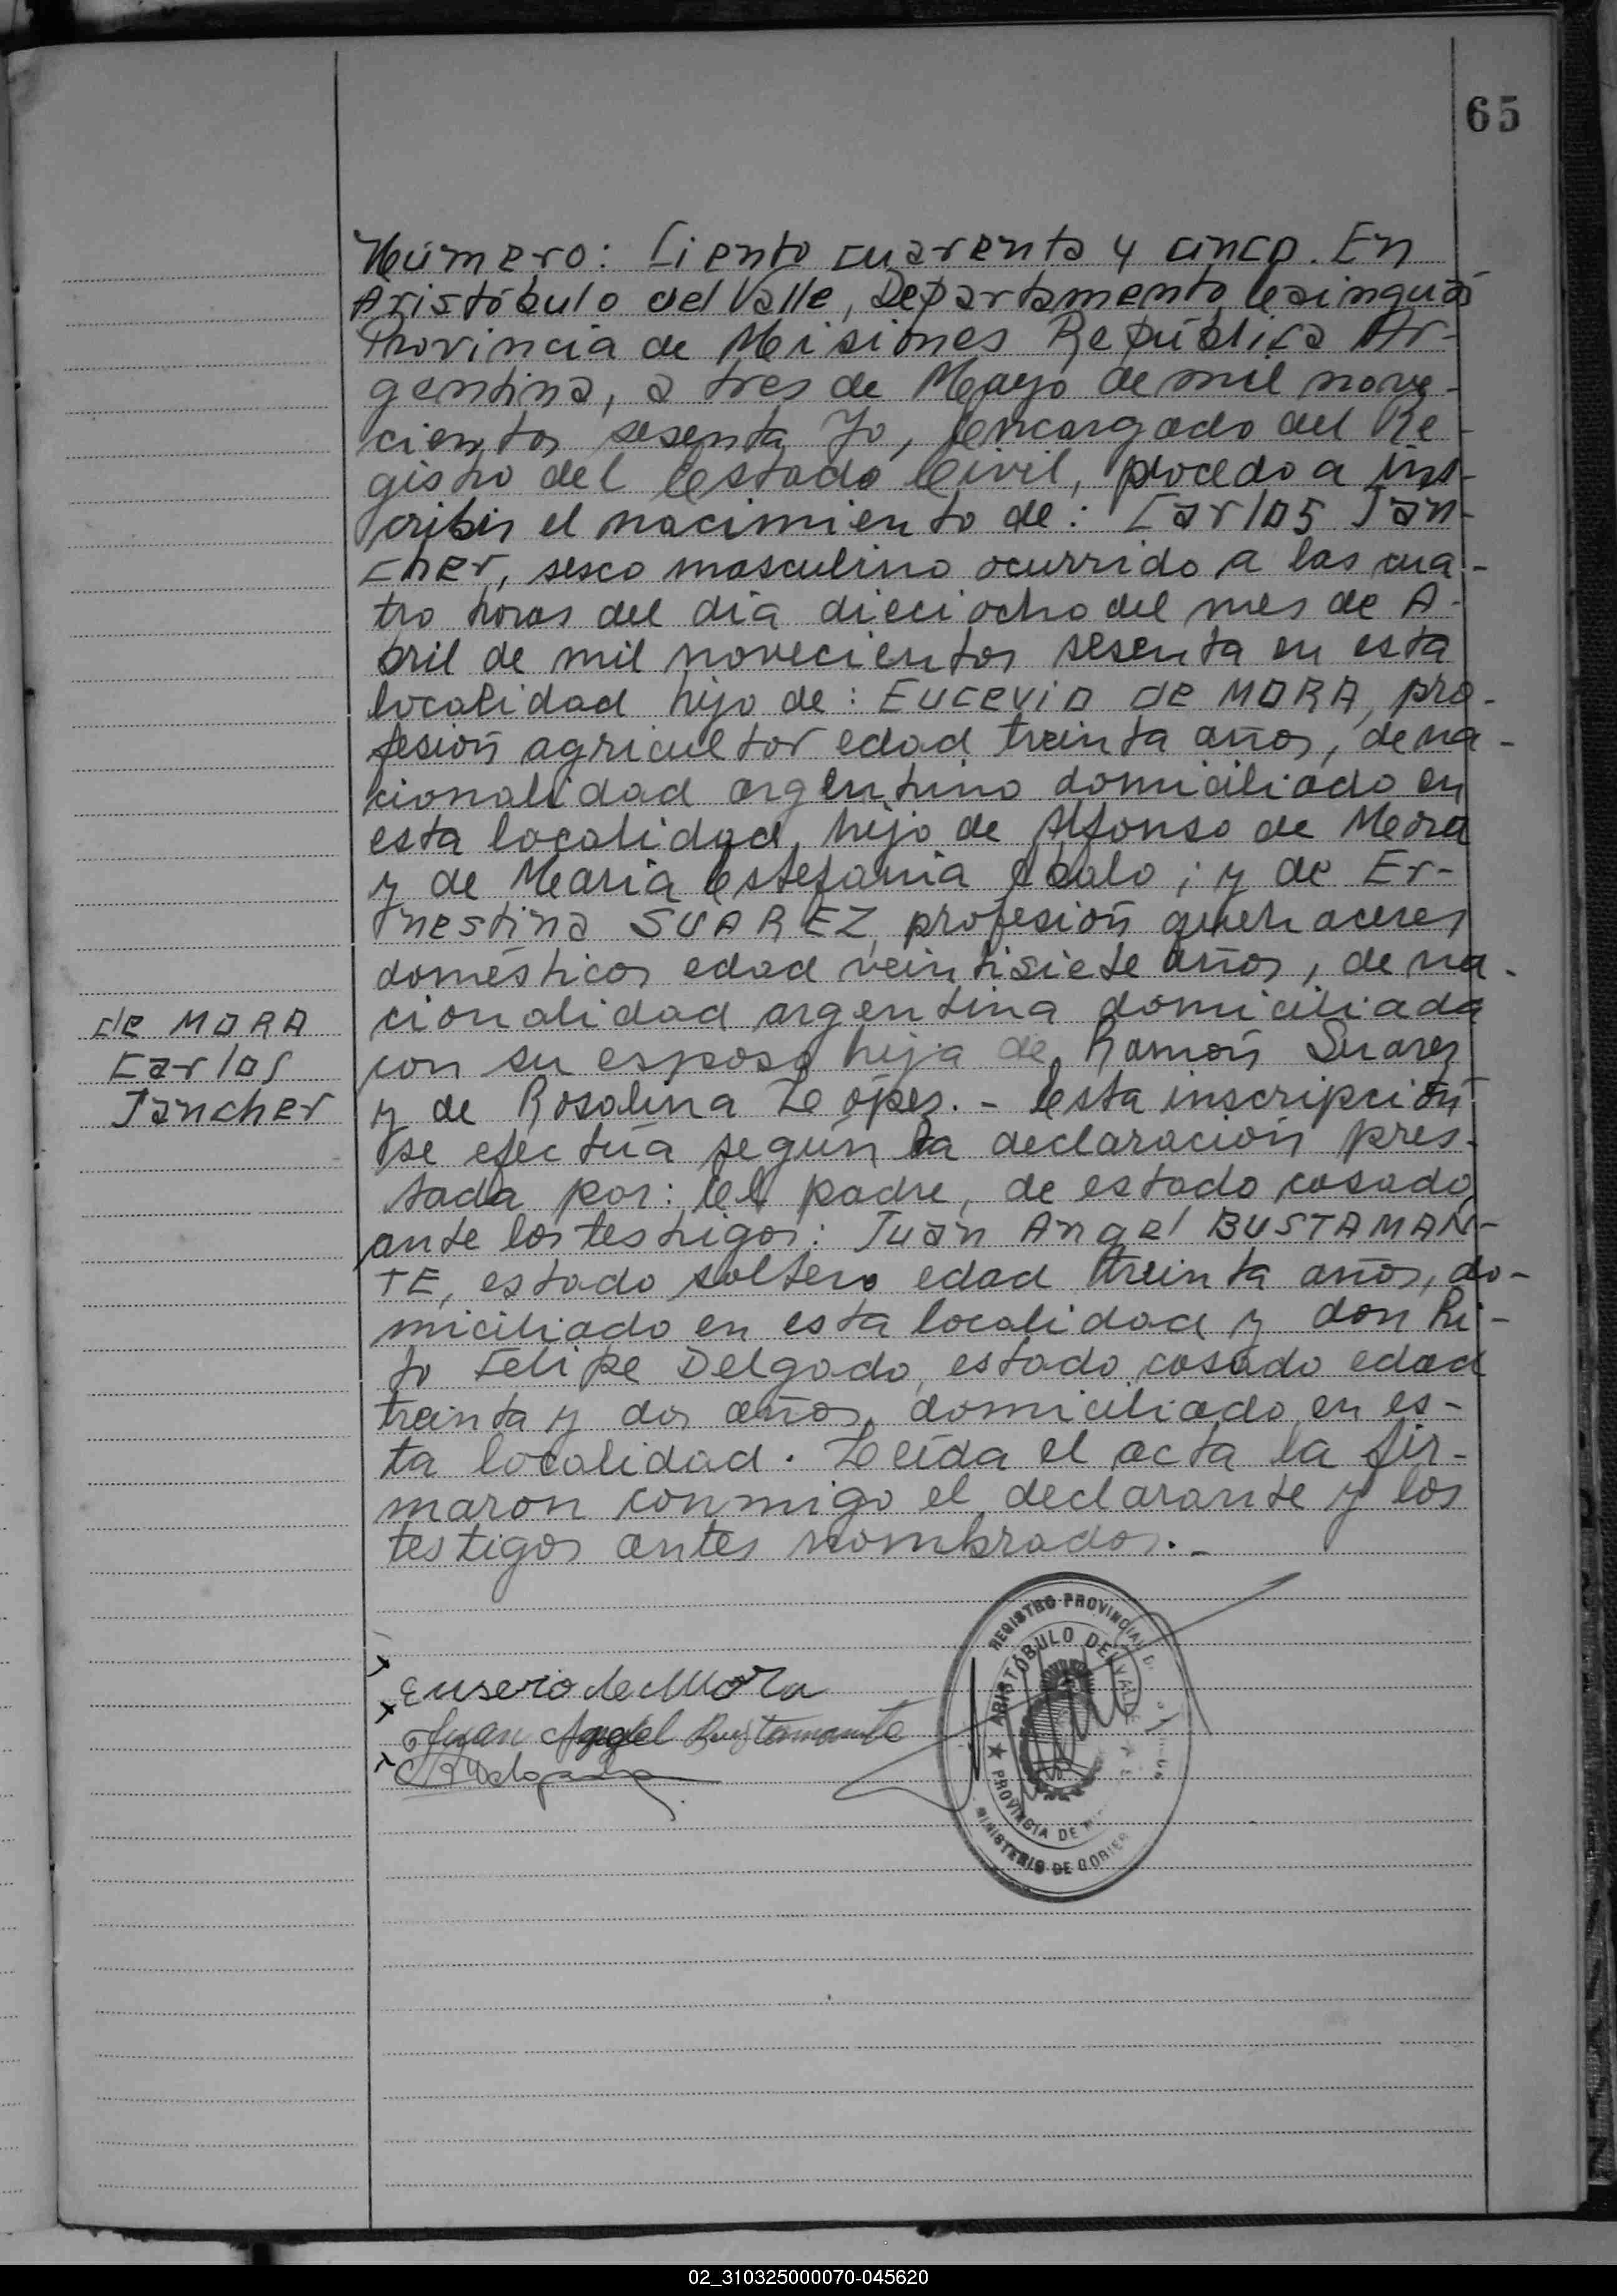 65
Número: Ciento cuarenta y cinco. En
Aristóbulo del Valle, Departamento Cainguás
Provincia de Misiones República Ar-
gentina, a tres de Mayo de mil nove-
cientos sesenta Yo, Encargado del Re-
gistro del Estado Civil, procedo a ins-
cribir el nacimiento de: Carlos Jan-
cher, sesco masculino ocurrido a las cua-
tro horas del día dieciocho del mes de A-
bril de mil novecientos sesenta en esta
localidad hijo de: Eucevio de MORA, pro-
fesión agricultor edad treinta años, de na-
cionalidad argentino domiciliado en
esta localidad, hijo de Alfonso de Mora
y de María Estefania ; y de Er-
nestina SUAREZ, profesión quehaceres
domésticos edad veintisiete años, de na-
cionalidad argentina domiciliada
con su esposo hija de Ramón Suarez
y de Rosalina López. - Esta inscripción
se efectúa según la declaración pres-
tada por: El padre, de estado casado,
ante los testigos: Juan Angel BUSTAMAN-
TE, estado soltero edad treinta años, do-
miciliado en esta localidad y don Ri-
to Felipe Delgado, estado casado edad
treinta y dos años, domiciliado en es-
ta localidad. Leída el acta la fir-
maron conmigo el declarante y los
testigos antes nombrados.-
de MORA
Carlos
Jancher
Euserio de Mora
Juan Angel Bustamante
REGISTRO PROVINCIAL
ARISTÓBULO DEL VALLE
PROVINCIA DE
MINISTERIO DE GOBIER
02_310325000070-045620